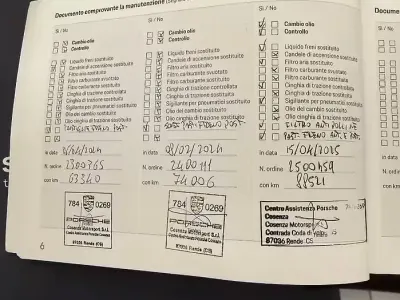 Documento comprovante la manutenzione
Si / No
Cambio olio
Controllo
Liquido freni sostituito
Candele di accensione sostituite
Filtro aria sostituito
Filtro carburante svuotato
Filtro carburante sostituito
Cinghia di trazione controllata
Cinghia di trazione sostituita
Sigillante per pneumatici sostituito
Olio del cambio sostituito
Olio cinghia di trazione sostituito
In data
N. ordine 2300365
con km 63340
784 0269
PORSCHE
Cosenza Motorsport S.r.l.
Centro Assistenza Porsche Cosenza
87036 Rende (CS)
6
Si / No
Cambio olio
Controllo
Liquido freni sostituito
Candele di accensione sostituite
Filtro aria sostituito
Filtro carburante svuotato
Filtro carburante sostituito
Cinghia di trazione controllata
Cinghia di trazione sostituita
Sigillante per pneumatici sostituito
Olio del cambio sostituito
Olio cinghia di trazione sostituito
In data 08/02/2024
N. ordine 2400111
con km 74006
784 0269
PORSCHE
Cosenza Motorsport S.r.l.
Centro Assistenza Porsche Cosenza
87036 Rende (CS)
Si / No
Cambio olio
Controllo
Liquido freni sostituito
Candele di accensione sostituite
Filtro aria sostituito
Filtro carburante svuotato
Filtro carburante sostituito
Cinghia di trazione controllata
Cinghia di trazione sostituita
Sigillante per pneumatici sostituito
Olio del cambio sostituito
Olio cinghia di trazione sostituito
FILTRO ANTI POLLINE
In data 15/04/2025
N. ordine 2500459
con km 88521
Centro Assistenza Porsche
Cosenza
Cosenza Motorsport
Contrada Coda di Volpe
87036 Rende CS
Documento
Si / No